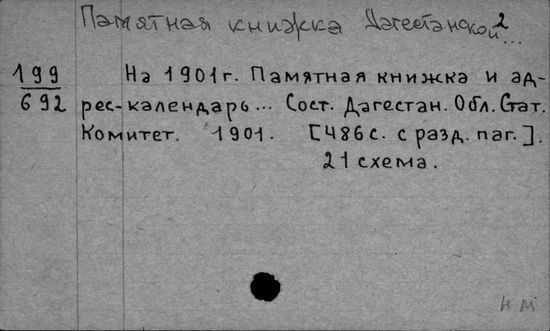 Памятная книжка Дагестанской... 2
199 На 1901г. Памятная книжка и ад-
692 рес-календарь... Сост. Дагестан. Обл. Стат.
Комитет. 1901. [486 с. с разд. паг.].
21 схема.
н м